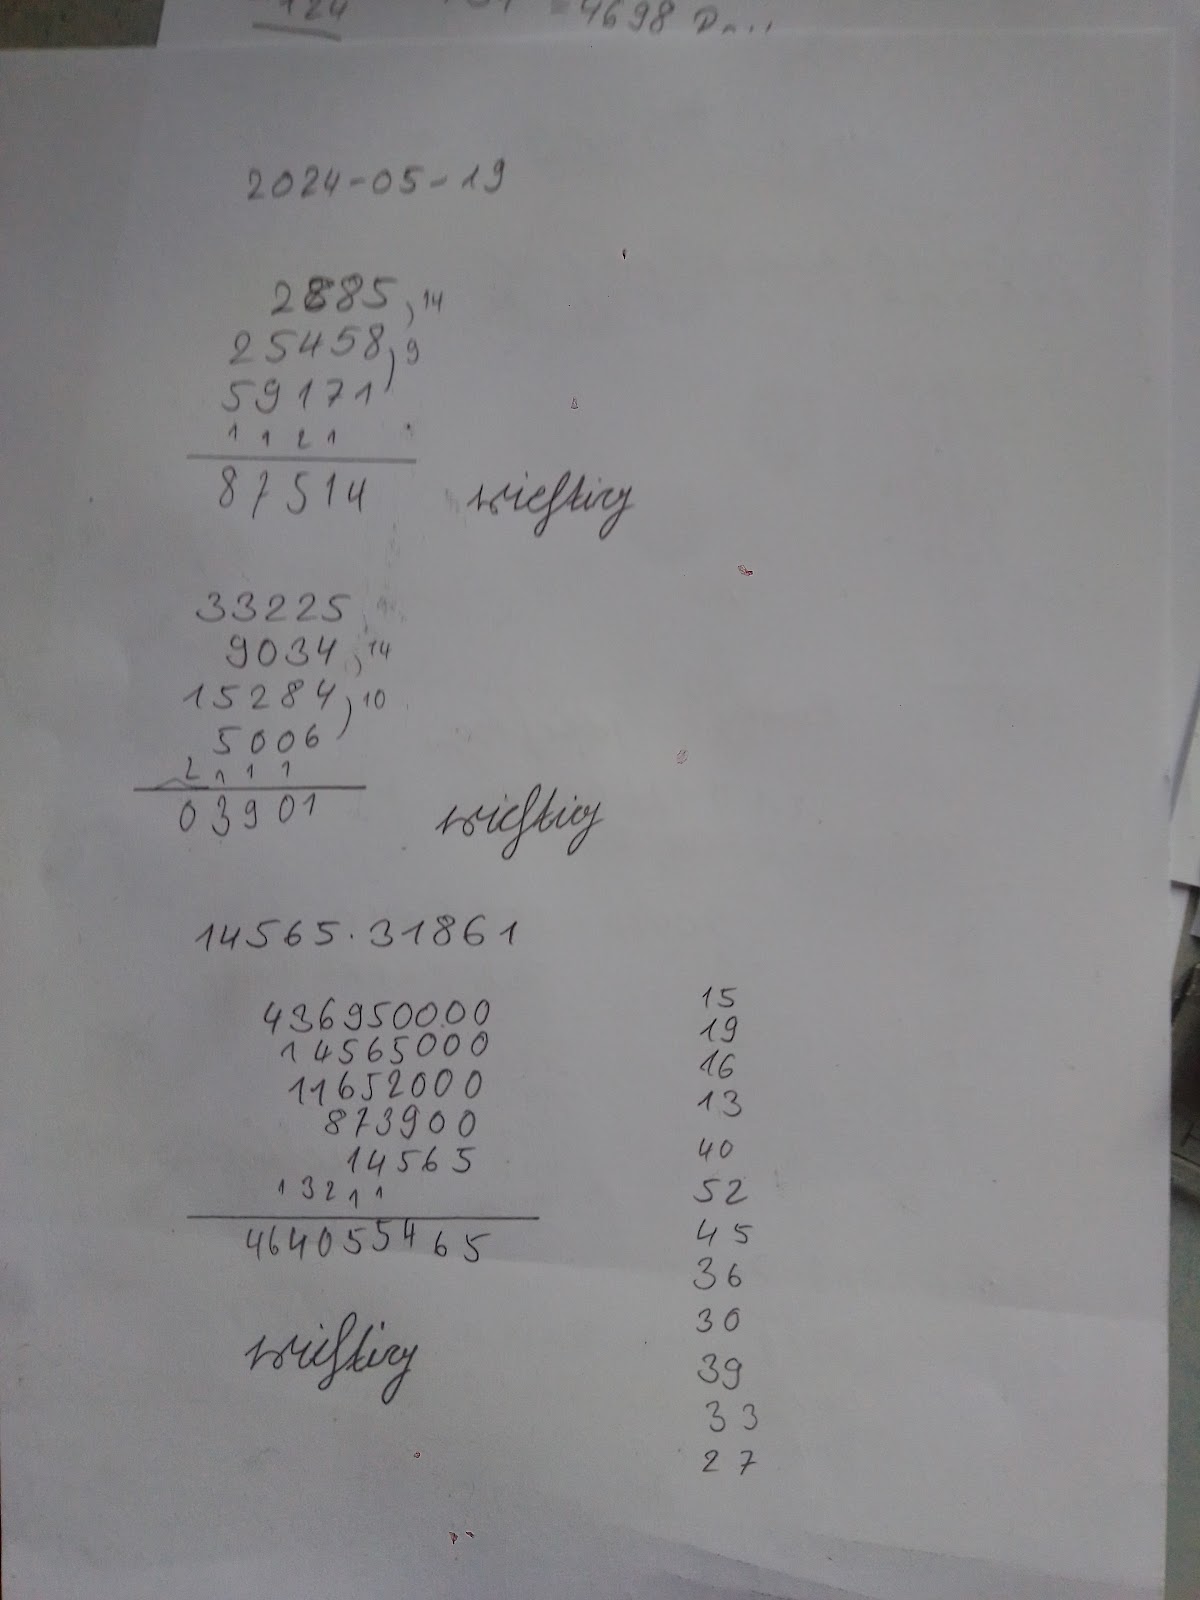 124
4698
2024-05-19
2885,14
25458,9
59171
1 1 2 1
87514
wichtig
33225
9034,14
15284,10
5006
2 1 1 1
03901
wichtig
14565·31861
436950000
14565000
11652000
873900
14565
1 3 2 1 1
464055465
wichtig
15
19
16
13
40
52
45
36
30
39
33
27